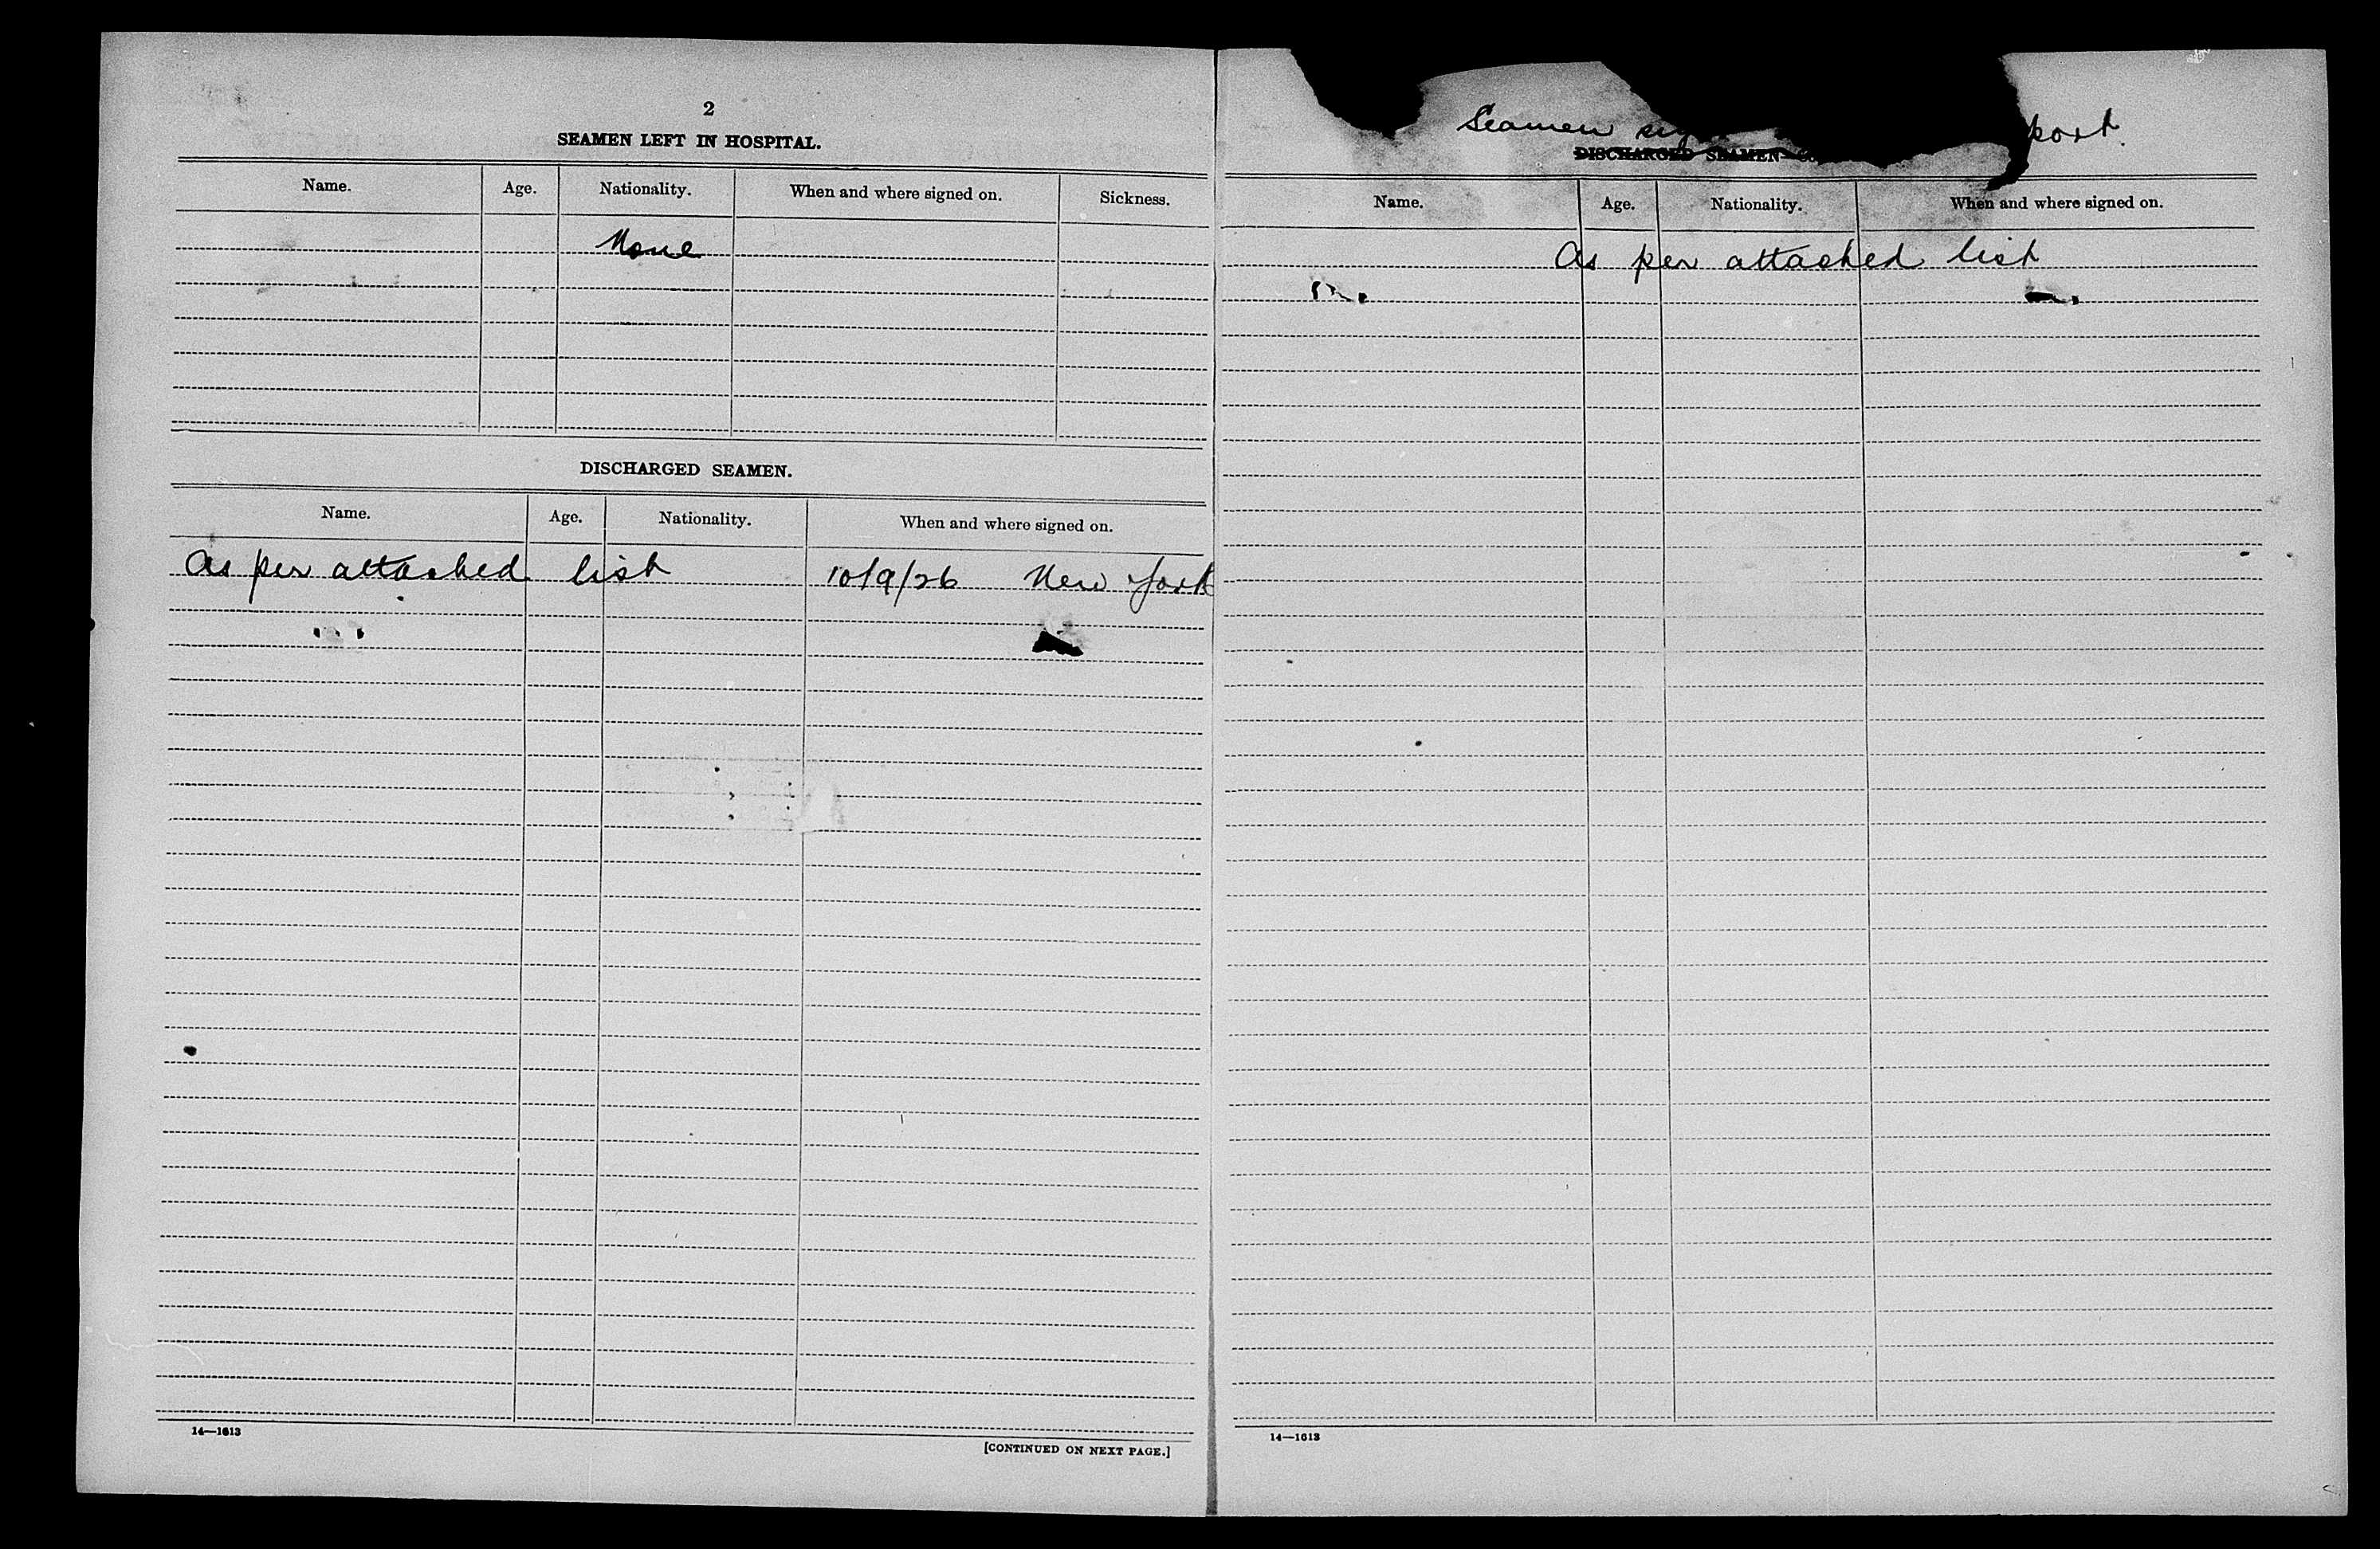 2
SEAMEN LEFT IN HOSPITAL.
Name. Age. Nationality. When and where signed on. Sickness.
None
DISCHARGED SEAMEN.
Name. Age. Nationality. When and where signed on.
As per attached list 10/9/26 New York
14—1613
[CONTINUED ON NEXT PAGE.]
Seamen port.
DISCHARGED SEAMEN
Name. Age. Nationality. When and where signed on.
As per attached list
14—1613